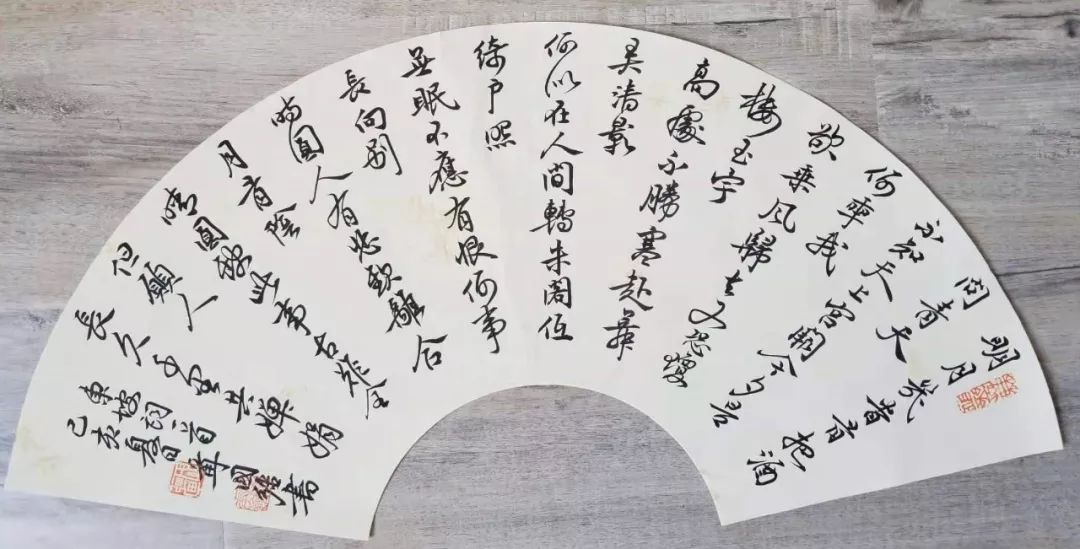 明月幾時有把酒
問青天
不知天上宮闕今夕是
何年我
欲乘風歸去又恐瓊
樓玉宇
高處不勝寒起舞
弄清影
何似在人間轉朱閣低
綺戶照
無眠不應有恨何事
長向別
時圓人有悲歡離合
月有陰
晴圓缺此事古難全
但願人
長久千里共嬋娟
東坡詞一首 國 書
己亥夏日